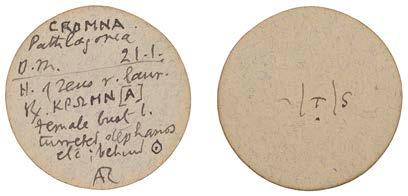 CROMNA.
Paphlagonia
O.M. 21.1.
H. of Zeus r. laur.
Rx. ΚΡΩΜΝ[Α]
Female bust l.
turreted stephanos
etc; behind ⊙
Æ